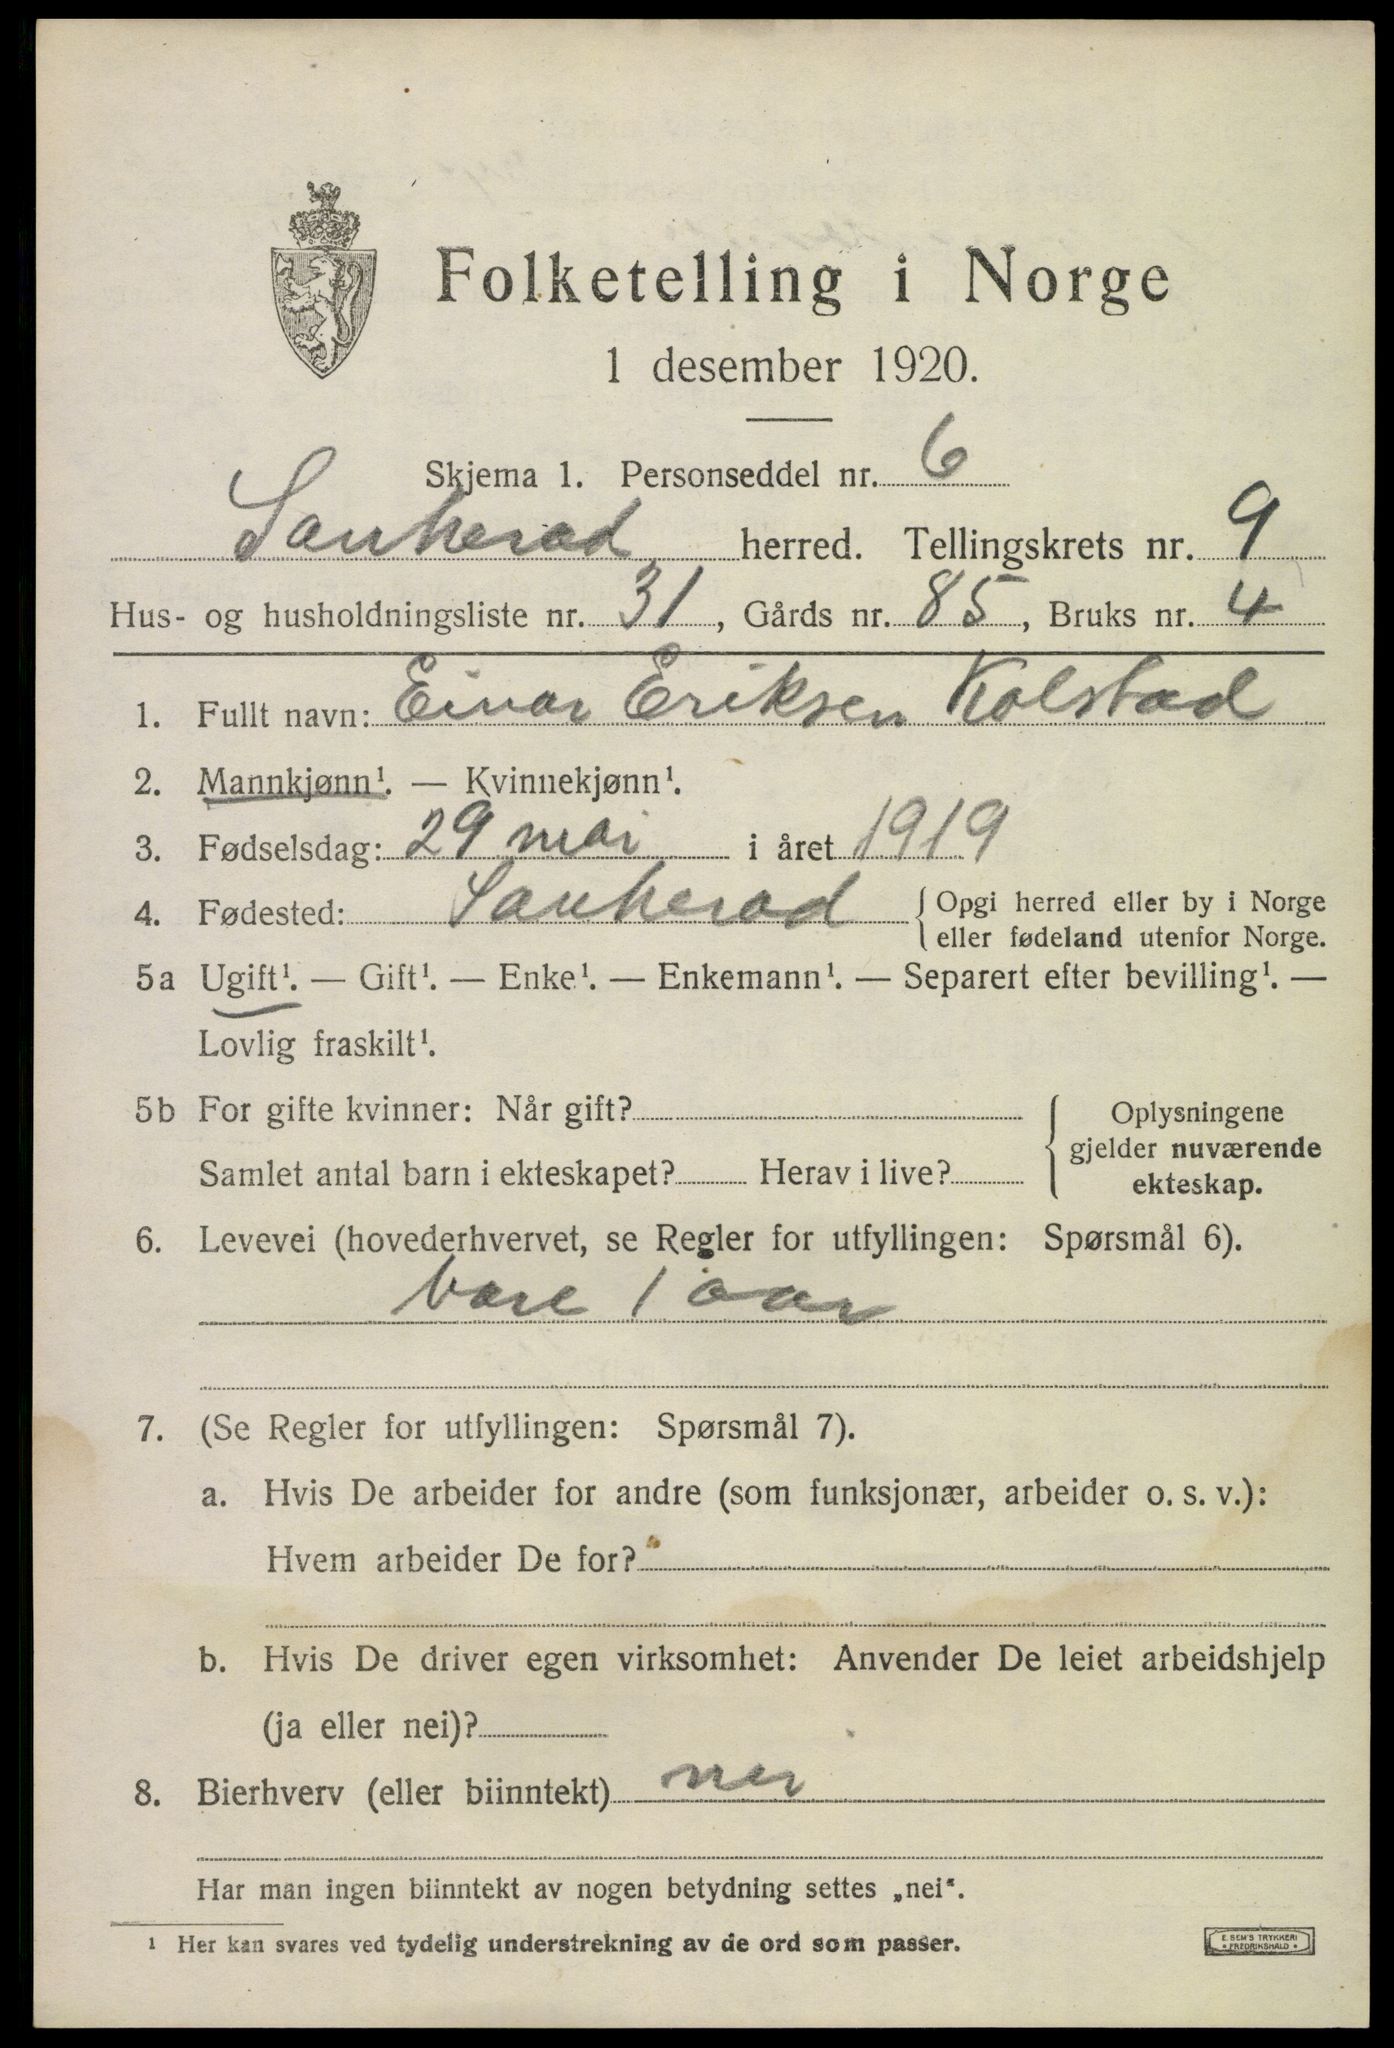 Folketelling i Norge
1 desember 1920.
Skjema 1. Personseddel nr. 6
Sauherad herred. Tellingskrets nr. 9
Hus- og husholdningsliste nr. 31, Gårds nr. 85, Bruks nr. 4
1. Fullt navn: Einar Eriksen Kolstad
2. Mannkjønn¹. — Kvinnekjønn¹.
3. Fødselsdag: 29 mai i året 1919
4. Fødested: Sauherad { Opgi herred eller by i Norge
eller fødeland utenfor Norge.
5a Ugift¹. — Gift¹. — Enke¹. — Enkemann¹. — Separert efter bevilling¹. —
Lovlig fraskilt¹.
5b For gifte kvinner: Når gift?
Samlet antal barn i ekteskapet? Herav i live?
{ Oplysningene
gjelder nuværende
ekteskap.
6. Levevei (hovederhvervet, se Regler for utfyllingen: Spørsmål 6).
bare 1 aar
7. (Se Regler for utfyllingen: Spørsmål 7).
a. Hvis De arbeider for andre (som funksjonær, arbeider o. s. v.):
Hvem arbeider De for?
b. Hvis De driver egen virksomhet: Anvender De leiet arbeidshjelp
(ja eller nei)?
8. Bierhverv (eller biinntekt) nei
Har man ingen biinntekt av nogen betydning settes „nei“.
¹ Her kan svares ved tydelig understrekning av de ord som passer.
E. SEM'S TRYKKERI
• FREDRIKSHALD •